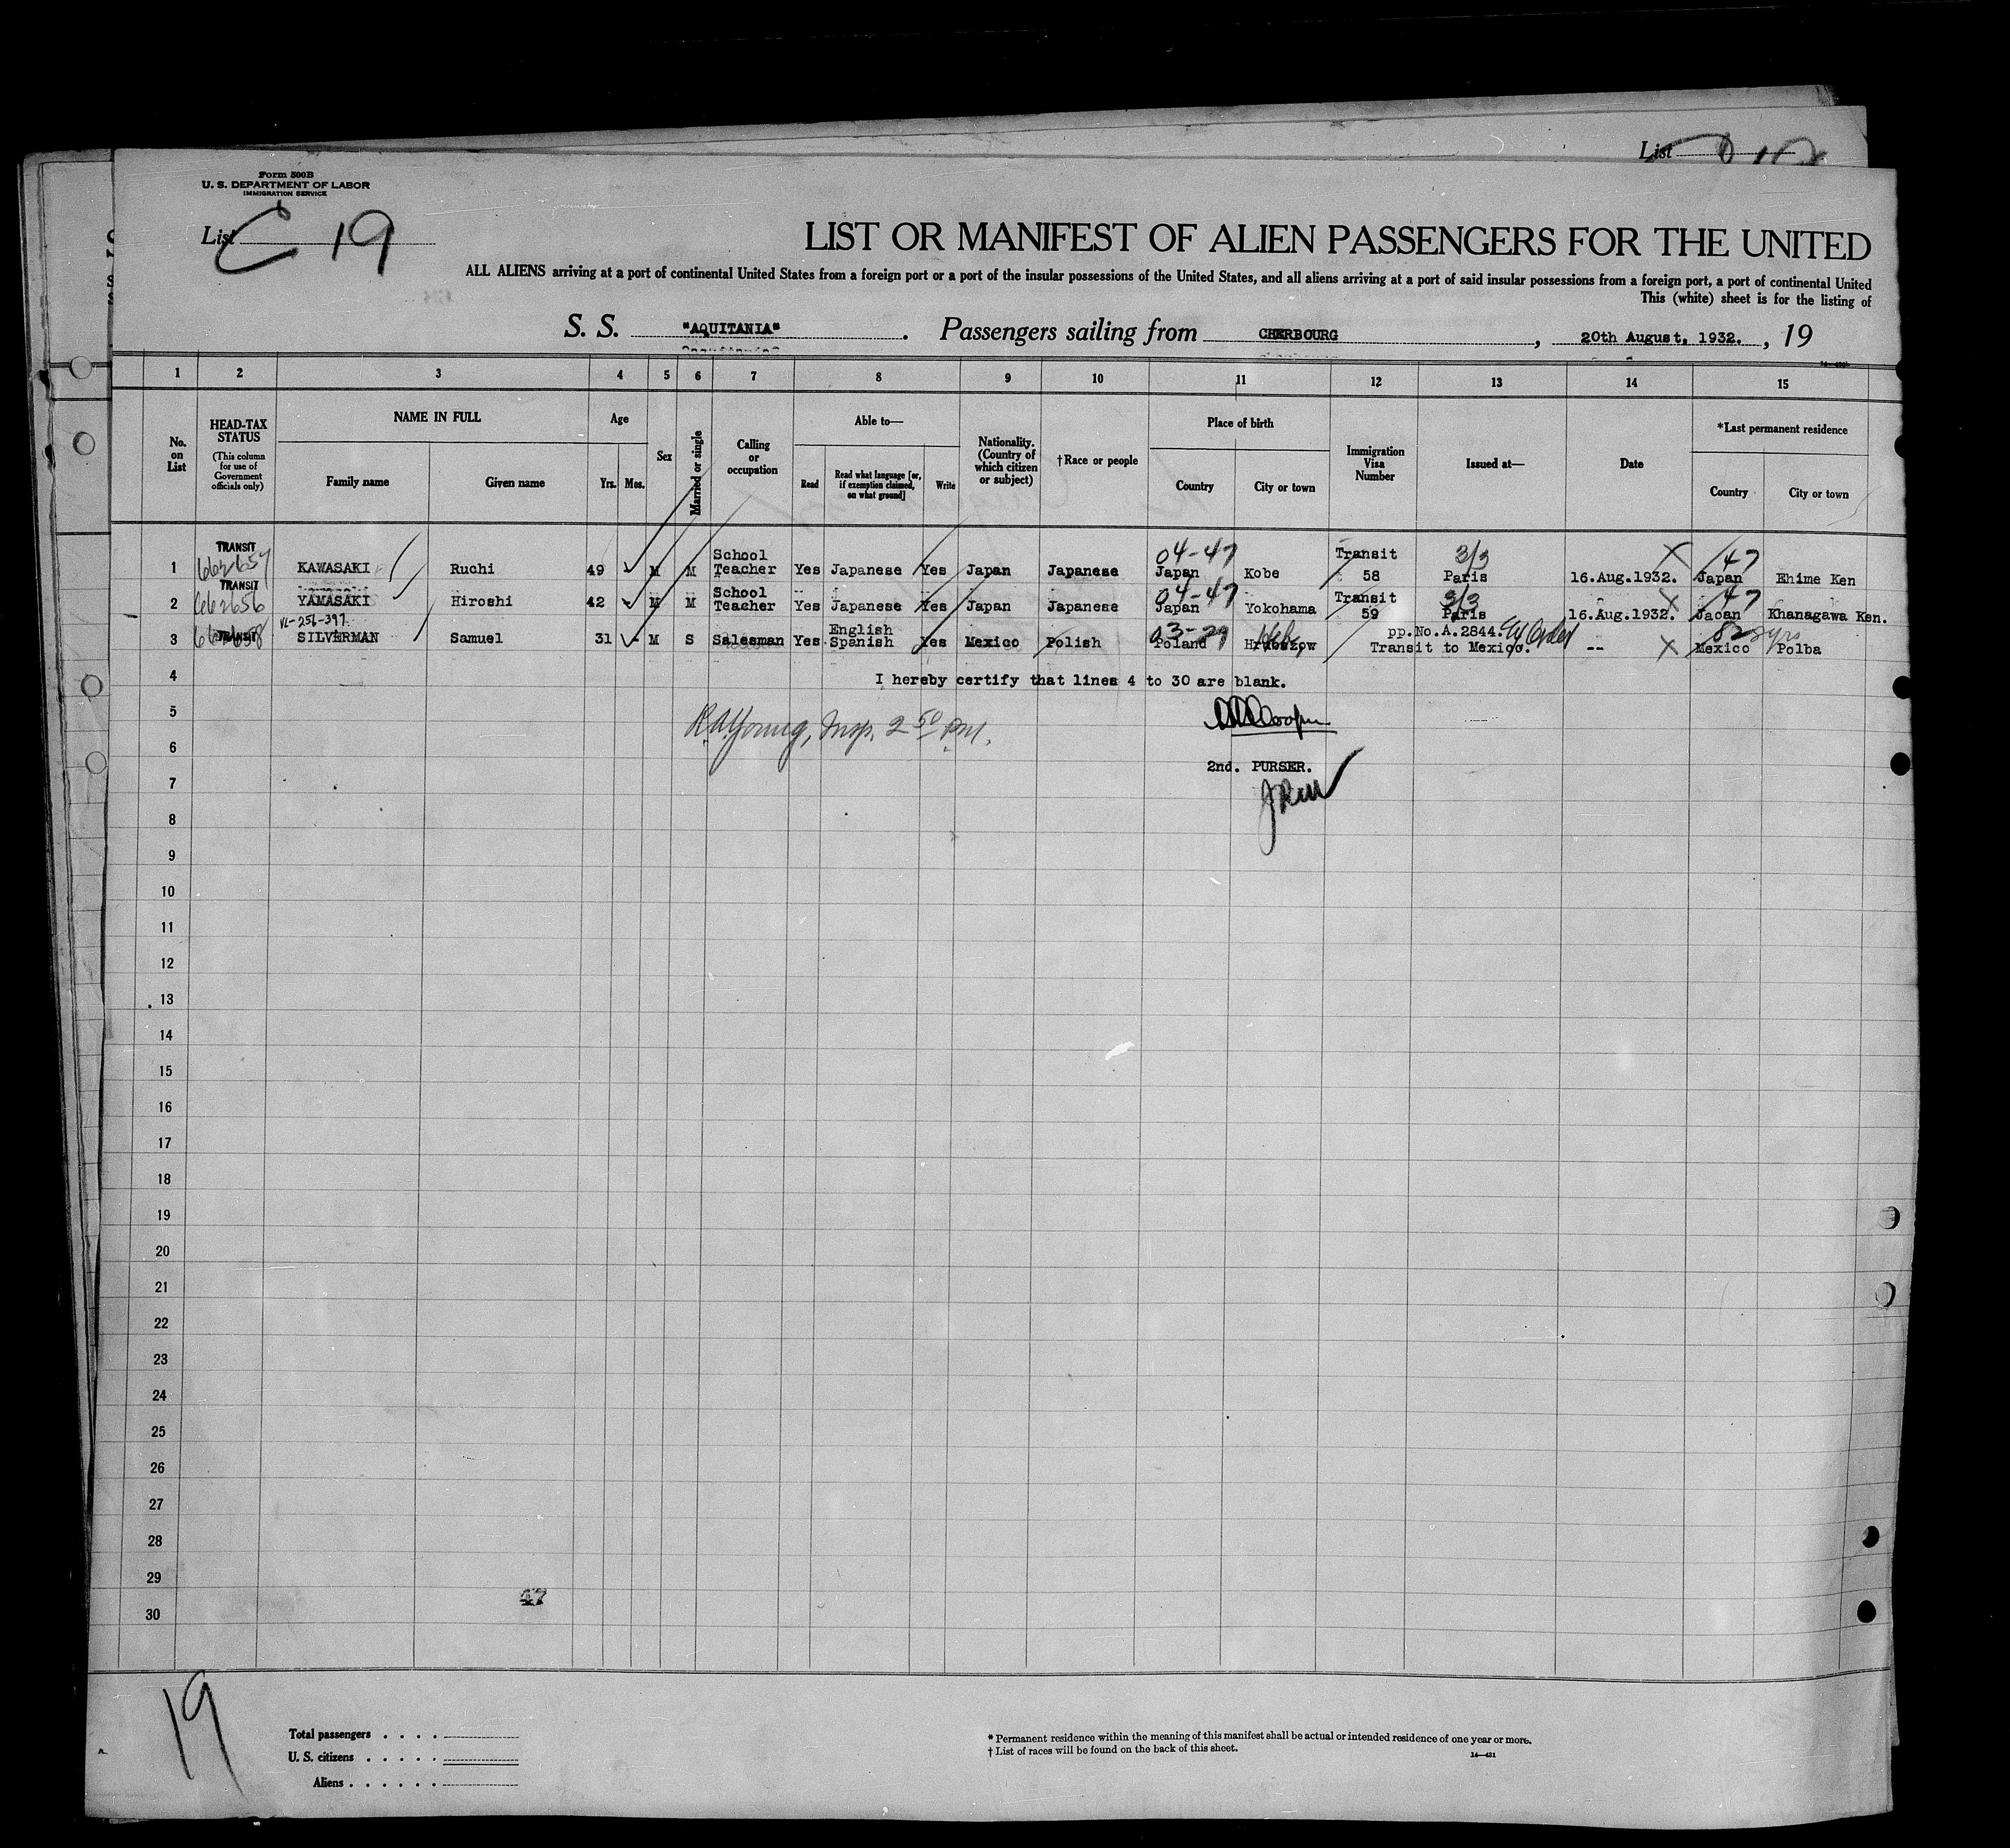 List
Form 500B
U. S. DEPARTMENT OF LABOR
IMMIGRATION SERVICE
List C 19
LIST OR MANIFEST OF ALIEN PASSENGERS FOR THE UNITED
ALL ALIENS arriving at a port of continental United States from a foreign port or a port of the insular possessions of the United States, and all aliens arriving at a port of said insular possessions from a foreign port, a port of continental United
This (white) sheet is for the listing of
S. S. "AQUITANIA". Passengers sailing from CHERBOURG, 20th August, 1932., 19
1 2 3 4 5 6 7 8 9 10 11 12 13 14 15
No. on List
HEAD-TAX STATUS
(This column for use of Government officials only)
NAME IN FULL
Family name
Given name
Age
Yrs. Mos.
Sex
Married or single
Calling or occupation
Able to—
Read
Read what language [or, if exemption claimed, on what ground]
Write
Nationality. (Country of which citizen or subject)
†Race or people
Place of birth
Country
City or town
Immigration Visa Number
Issued at—
Date
*Last permanent residence
Country
City or town
TRANSIT School 04-47 Transit 3/3 47
1 662657 KAWASAKI Ruchi 49 M M Teacher Yes Japanese Yes Japan Japanese Japan Kobe 58 Paris 16.Aug.1932. Japan Ehime Ken
TRANSIT School 04-47 Transit 3/3 47
2 662656 YAMASAKI Hiroshi 42 M M Teacher Yes Japanese Yes Japan Japanese Japan Yokohama 59 Paris 16.Aug.1932. Jaoan Khanagawa Ken.
VL-256-397 English 03-29 pp.No.A.2844. 82
3 662658 TRANSIT SILVERMAN Samuel 31 M S Salesman Yes Spanish Yes Mexico Polish Poland Transit to Mexico. -- Mexico Polba
4 I hereby certify that lines 4 to 30 are blank.
5
R.A. Young, Insp. 2 50 P.M.
6
2nd. PURSER.
7
JRM
8
9
10
11
12
13
14
15
16
17
18
19
20
21
22
23
24
25
26
27
28
29
47
30
19
Total passengers . . . .
U. S. citizens . . . . .
Aliens . . . . . .
* Permanent residence within the meaning of this manifest shall be actual or intended residence of one year or more.
† List of races will be found on the back of this sheet.
14—431